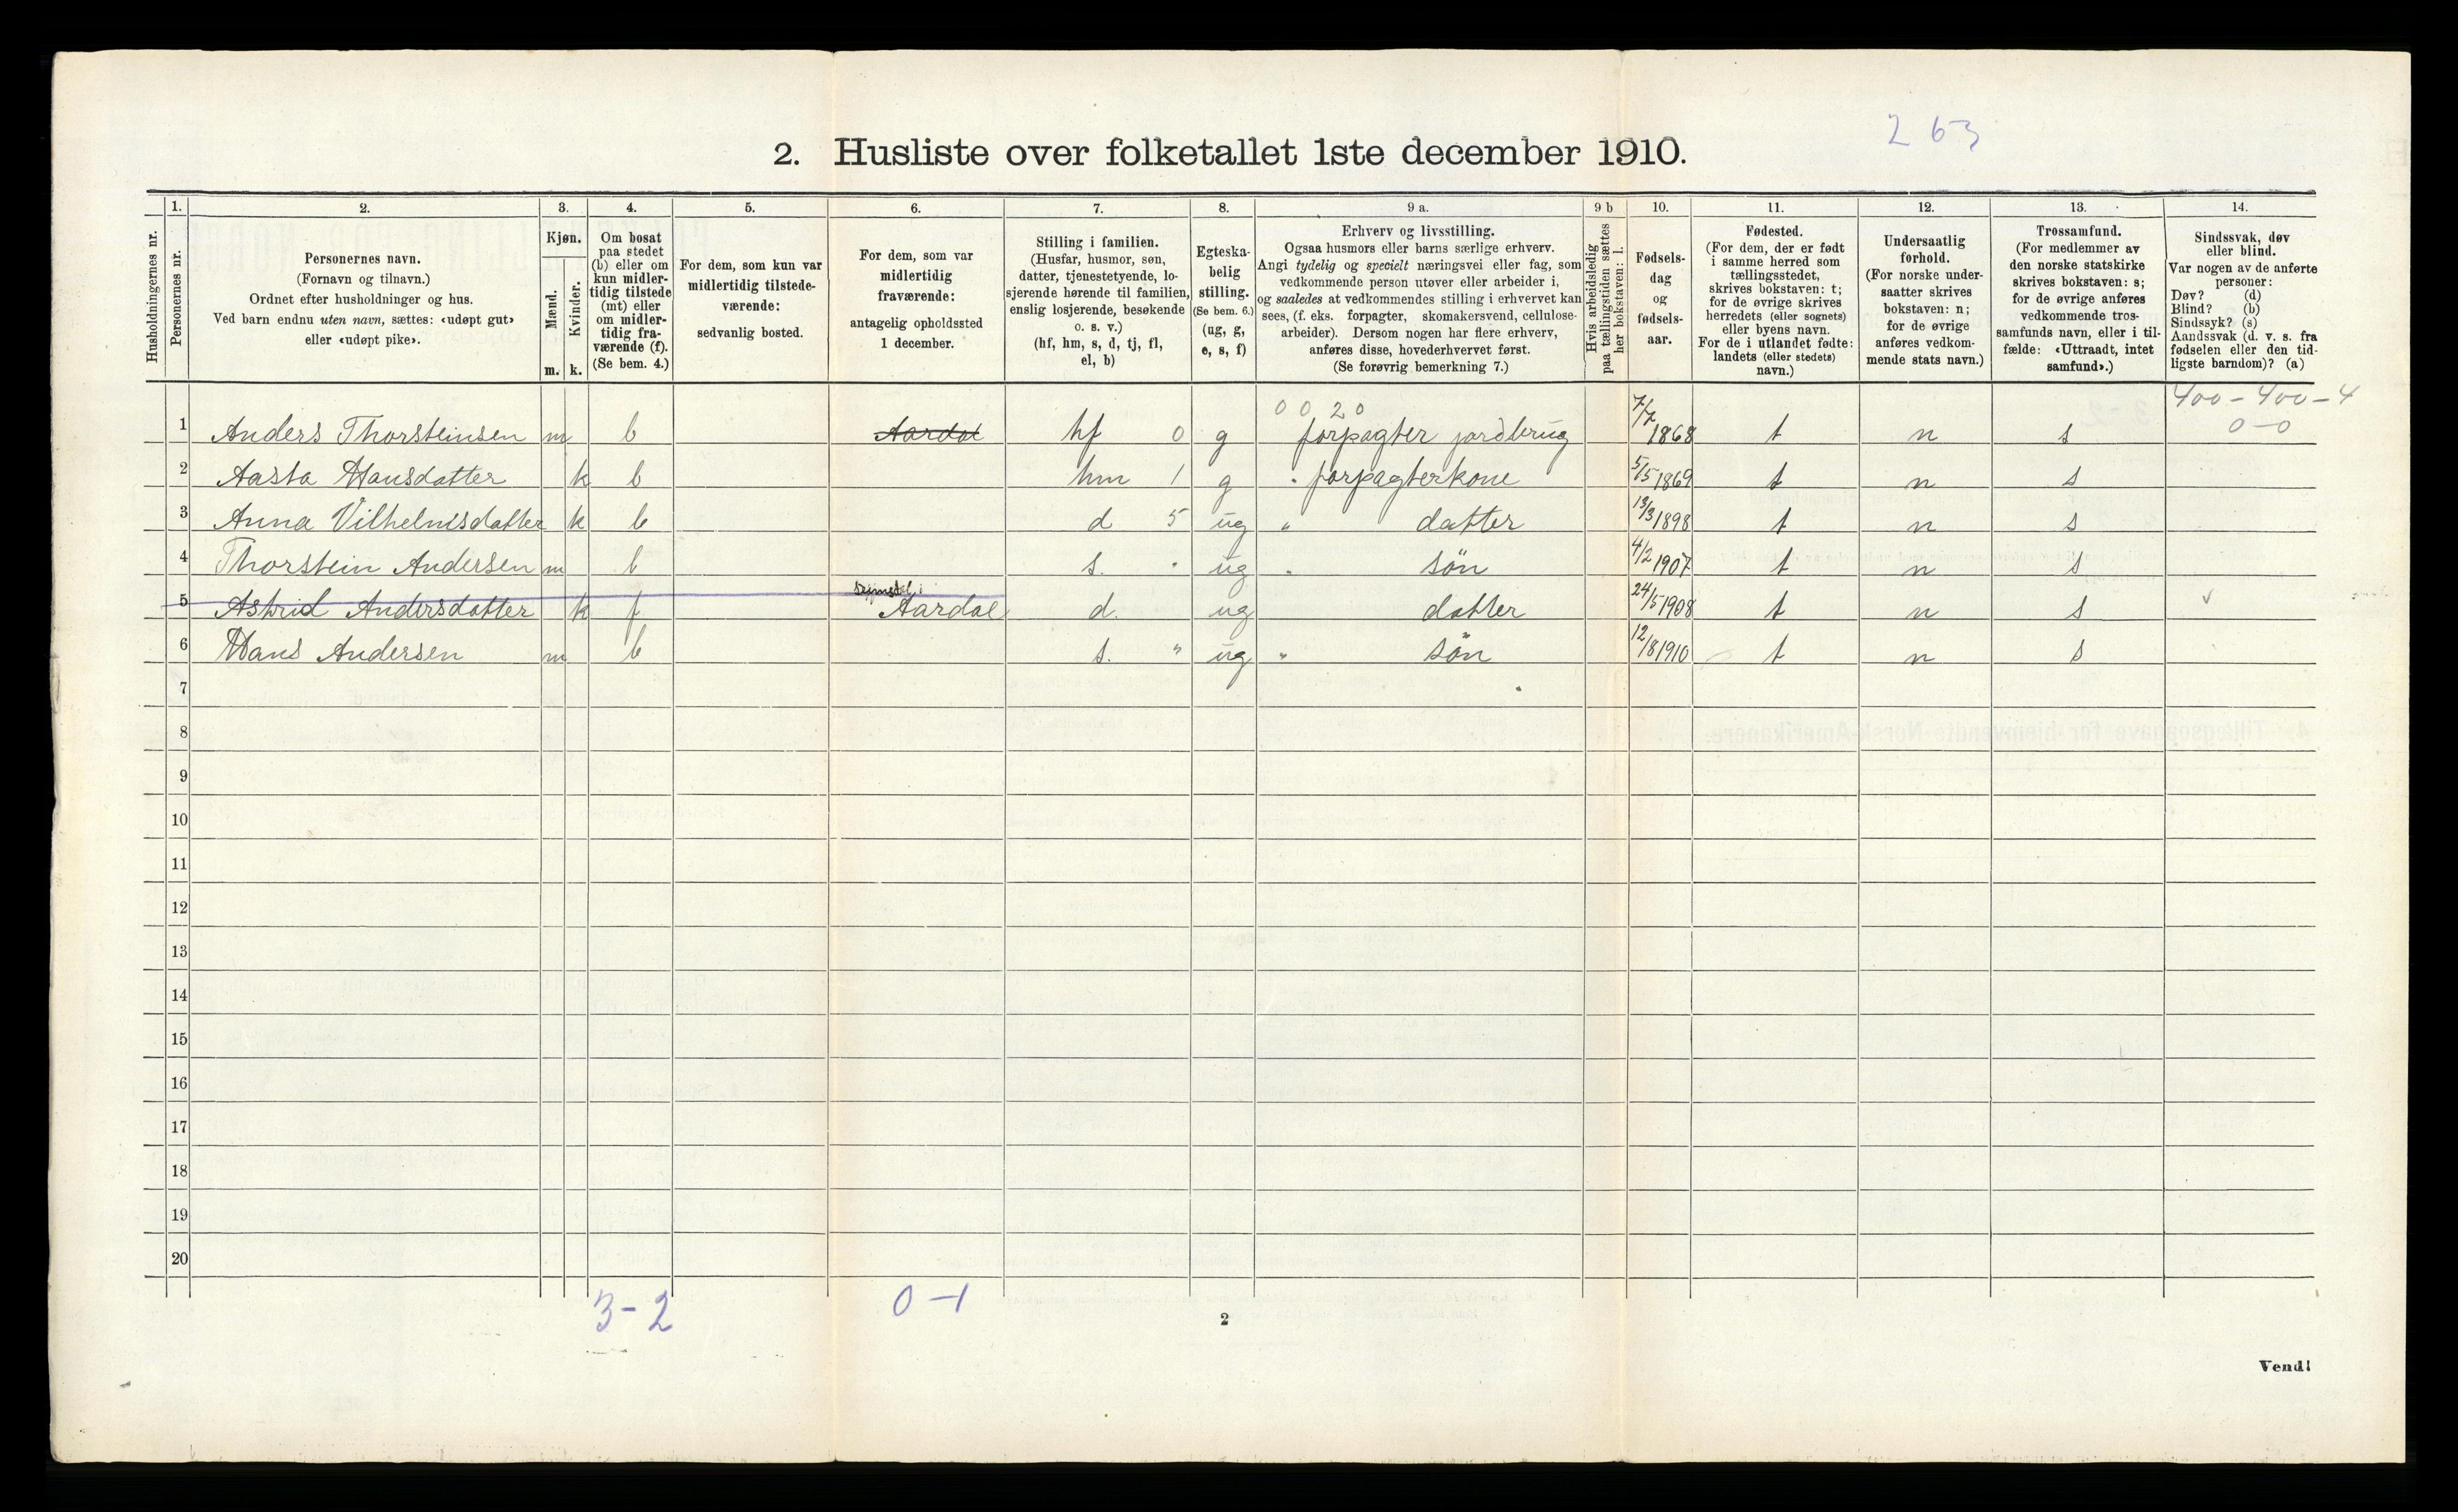 263
2. Husliste over folketallet 1ste december 1910.
Husholdningernes nr.
1. Personernes nr.
2. Personernes navn.
(Fornavn og tilnavn.)
Ordnet efter husholdninger og hus.
Ved barn endnu uten navn, sættes: «udøpt gut»
eller «udøpt pike».
3. Kjøn.
Mænd. Kvinder.
m. k.
4. Om bosat
paa stedet
(b) eller om
kun midler-
tidig tilstede
(mt) eller
om midler-
tidig fra-
værende (f).
(Se bem. 4.)
5. For dem, som kun var
midlertidig tilstede-
værende:
sedvanlig bosted.
6. For dem, som var
midlertidig
fraværende:
antagelig opholdssted
1 december.
7. Stilling i familien.
(Husfar, husmor, søn,
datter, tjenestetyende, lo-
sjerende hørende til familien,
enslig losjerende, besøkende
o. s. v.)
(hf, hm, s, d, tj, fl,
el, b)
8. Egteska-
belig
stilling.
(Se bem. 6.)
(ug, g,
e, s, f)
9 a. Erhverv og livsstilling.
Ogsaa husmors eller barns særlige erhverv.
Angi tydelig og specielt næringsvei eller fag, som
vedkommende person utøver eller arbeider i,
og saaledes at vedkommendes stilling i erhvervet kan
sees, (f. eks. forpagter, skomakersvend, cellulose-
arbeider). Dersom nogen har flere erhverv,
anføres disse, hovederhvervet først.
(Se forøvrig bemerkning 7.)
9 b Hvis arbeidsledig
paa tællingstiden sættes
her bokstaven: l.
10. Fødsels-
dag
og
fødsels-
aar.
11. Fødested.
(For dem, der er født
i samme herred som
tællingsstedet,
skrives bokstaven: t;
for de øvrige skrives
herredets (eller sognets)
eller byens navn.
For de i utlandet fødte:
landets (eller stedets)
navn.)
12. Undersaatlig
forhold.
(For norske under-
saatter skrives
bokstaven: n;
for de øvrige
anføres vedkom-
mende stats navn.)
13. Trossamfund.
(For medlemmer av
den norske statskirke
skrives bokstaven: s;
for de øvrige anføres
vedkommende tros-
samfunds navn, eller i til-
fælde: «Uttraadt, intet
samfund».)
14. Sindssvak, døv
eller blind.
Var nogen av de anførte
personer:
Døv? (d)
Blind? (b)
Sindssyk? (s)
Aandssvak (d. v. s. fra
fødselen eller den tid-
ligste barndom)? (a)
0 0 20 400-400-4
0-0
1 Anders Thorsteinsen m b Aardal hf 0 g forpagter jordbrug 7/7 1868 t n s
2 Aasta Hansdatter k b hm 1 g " forpagterkone 5/5 1869 t n s
3 Anna Vilhelmsdatter k b d 5 ug " datter 13/3 1898 t n s
4 Thorstein Andersen m b s. " ug " søn 4/2 1907 t n s
5 Astrid Andersdatter k f Aardal d. ug datter 24/5 1908 t n s
6 Hans Andersen m b s. " ug " søn 12/8 1910 t n s
7
8
9
10
11
12
13
14
15
16
17
18
19
20
3-2 0-1
2
Vend!